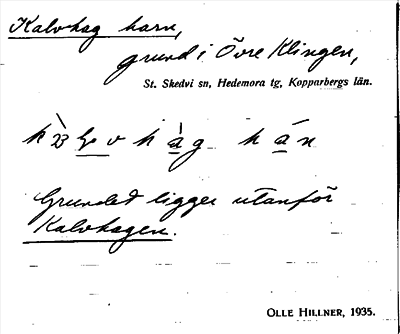 Kalvhag harn,
grund i Övre Klingen,
St. Skedvi sn, Hedemora tg, Kopparbergs län.
Grundet ligger utanför
Kalvhagen.
OLLE HILLNER, 1935.